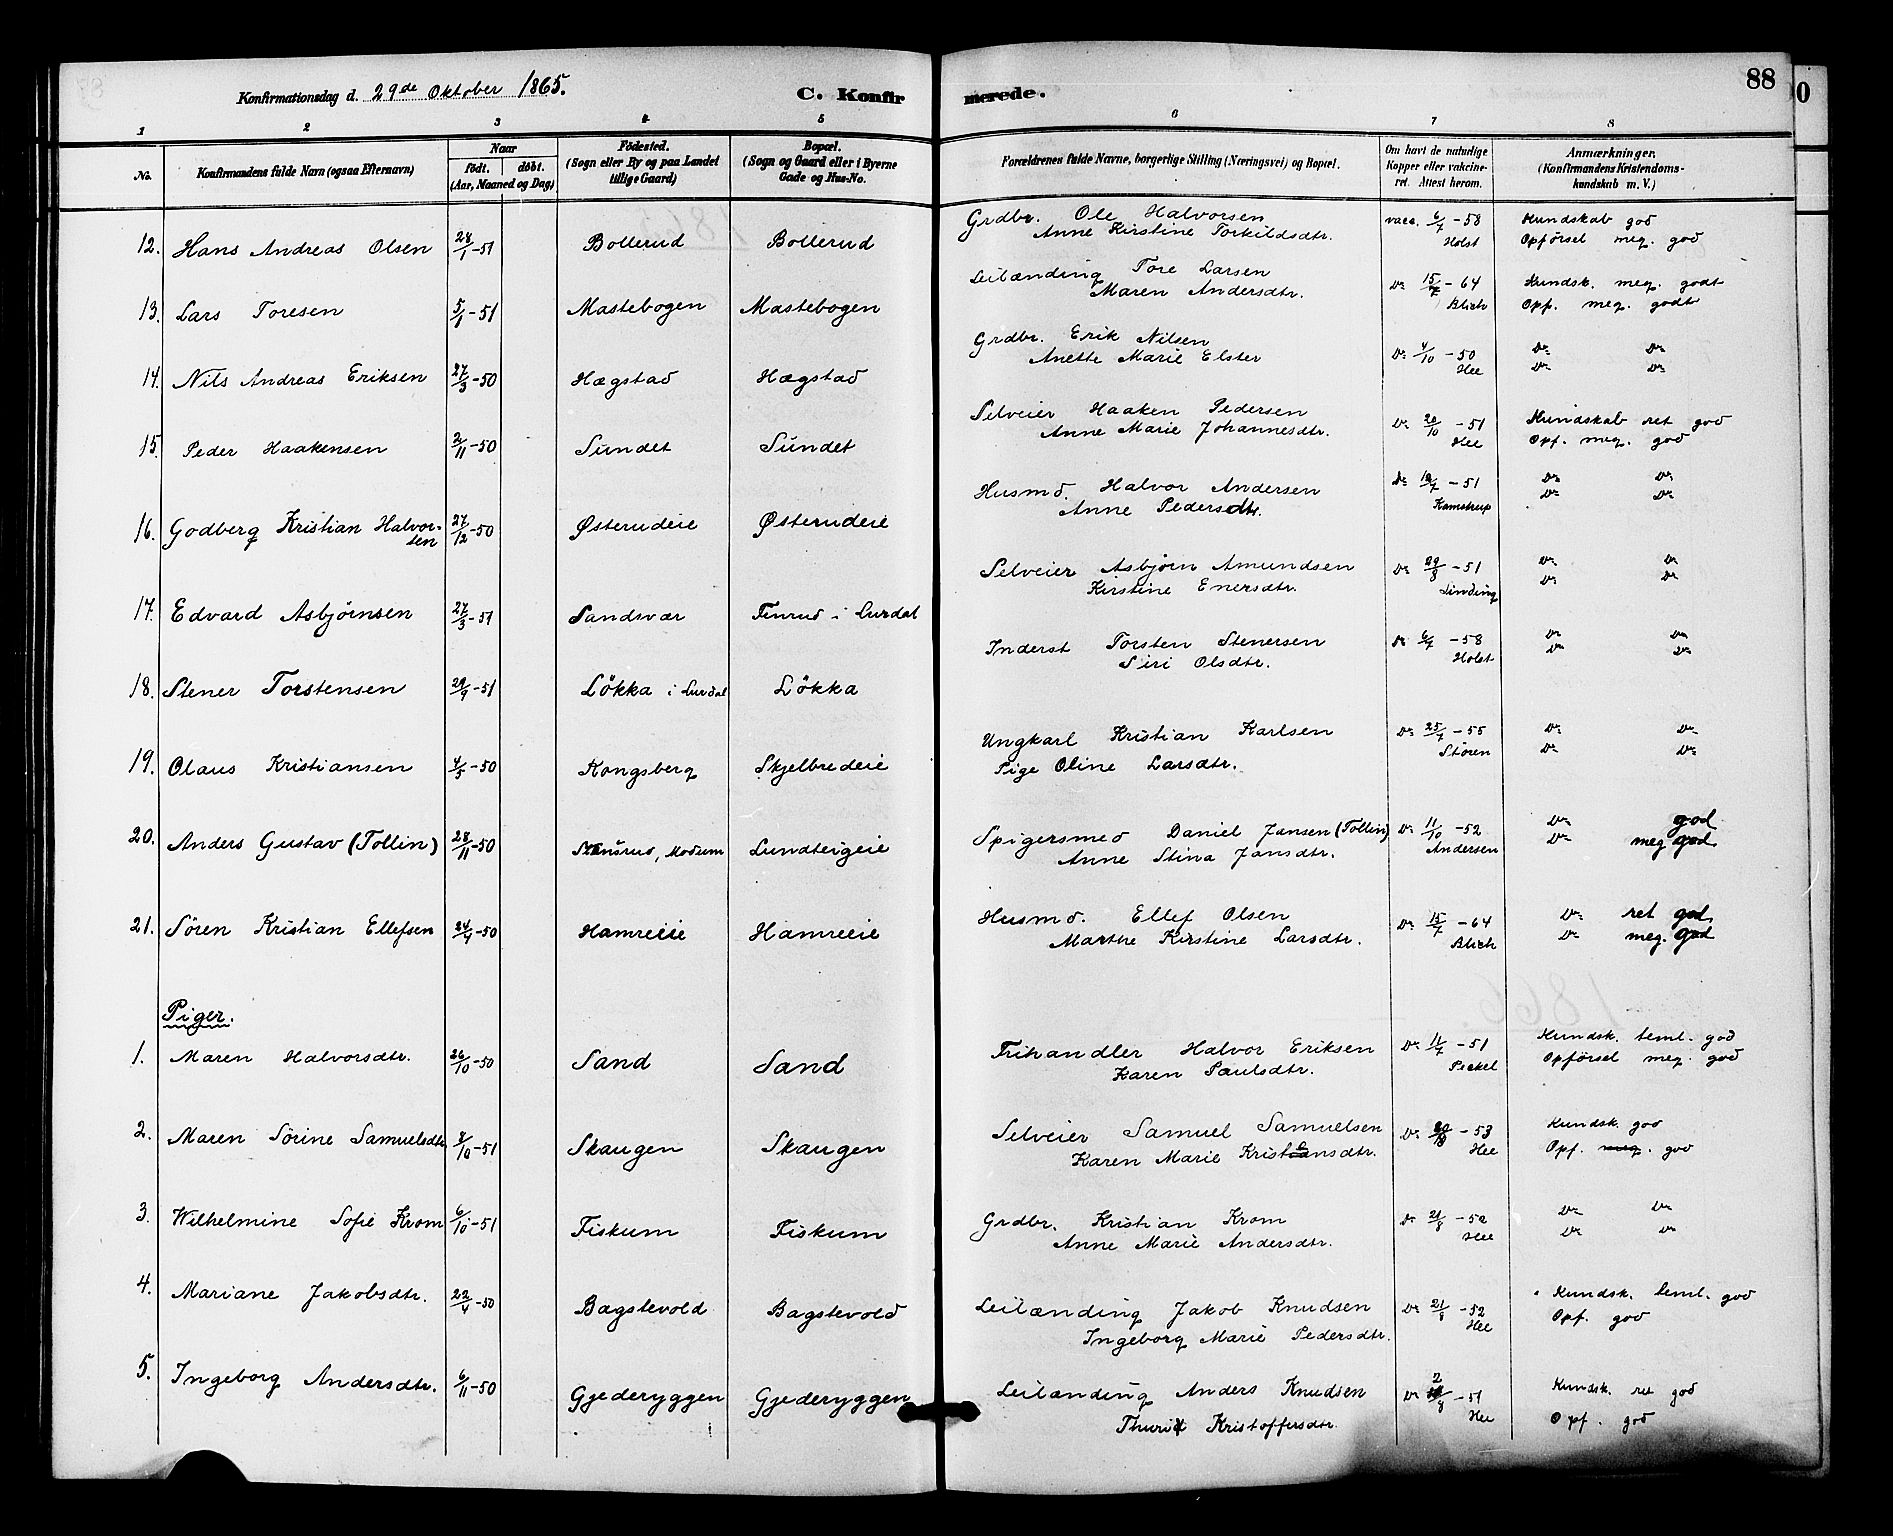 Konfirmationsdag d. 29de Oktober 1865.
C. Konfirmerede.
88
1 2 3 4 5 6 7 8
No. Konfirmandens fulde Navn (ogsaa Efternavn) Naar födt. döbt. (Aar, Maaned og Dag) Födested. (Sogn eller By og paa Landet tillige Gaard) Bopæl. (Sogn og Gaard eller i Byerne Gade og Hus-No. Forældrenes fulde Navne, borgerlige Stilling (Næringsvei) og Bopæl. Om havt de naturlige Kopper eller vakcineret. Attest herom. Anmærkninger. (Konfirmandens Kristendomskundskab m. V.)
12. Hans Andreas Olsen 28/1-51 Bollerud Bollerud Grdbr. Ole Halvorsen vacc. 6/7-58 Kundskab god
Anne Kirstine Torkildsdtr. Holst Opførsel meg. god
13. Lars Toresen 5/1-51 Mastebogen Mastebogen Leilænding Tore Larsen Do 15/7-64 Kundsk. meg. godt
Maren Andersdtr. Blich Opf. meg. godt
14. Nils Andreas Eriksen 27/3-50 Hægstad Hægstad Grdbr. Erik Nilsen Do 4/10-50 Do Do
Anette Marie Elster Hee Do Do
15. Peder Haakensen 2/11-50 Sundet Sundet Selveier Haaken Pedersen Do 20/10-51 Kundskab ret god
Anne Marie Johannesdtr. Hee Opf. meg. god
16. Godberg Kristian Halvorsen 27/12-50 Østerudeie Østerudeie Husmd. Halvor Andersen Do 18/7-51 Do Do
Anne Pedersdtr. Kamstrup Do Do
17. Edvard Asbjørnsen 27/3-51 Sandsvær Finrud i Lurdal Selveier Asbjørn Amundsen Do 29/8-51 Do Do
Kirstine Enersdtr. Linding Do Do
18. Stener Torstensen 29/9-51 Løkka i Lurdal Løkka Inderst Torsten Stenersen Do 6/7-58 Do Do
Siri Olsdtr. Holst Do Do
19. Olaus Kristiansen 4/5-50 Kongsberg Skjelbredeie Ungkarl Kristian Karlsen Do 25/7-55 Do Do
Pige Oline Larsdtr. Støren Do Do
20. Anders Gustav (Tollin) 28/11-50 Modum Lundteigeie Spigersmed Daniel Jansen (Tollin) Do 11/10-52 Do god
Anne Stina Jansdtr. Andersen Do meg god
21. Søren Kristian Ellefsen 24/4-50 Hamreeie Hamreeie Husmd. Ellef Olsen Do 15/7-64 Do ret god
Marthe Kirstine Larsdtr. Blich Do meg. god
Piger.
1. Maren Halvorsdtr. 26/10-50 Sand Sand Trihandler Halvor Eriksen Do 11/7-51 Kundsk. teml. god
Karen Paulsdtr. Peckel Opførsel meg. god
2. Maren Sørine Samuelsdtr 7/10-51 Skaugen Skaugen Selveier Samuel Samuelsen Do -53 Kundsk. god
Karen Marie Kristensdtr. Hee Opf. meg. god
3. Wilhelmine Sofie Krom 6/10-51 Fiskum Fiskum Grdbr. Kristian Krom Do 21/8-52 Do Do
Anne Marie Andersdtr. Hee Do Do
4. Mariane Jakobsdtr. 22/4-50 Bagstevold Bagstevold Leilænding Jakob Knudsen Do 21/8-52 Kundsk. teml. god
Ingeborg Marie Pedersdtr. Hee Opf. god
5. Ingeborg Andersdtr. 6/11-50 Gjederyggen Gjederyggen Leilænding Anders Knudsen Do 2/8-51 Kundsk. ret god
Thuri Kristoffersdtr. Hee Opf. god